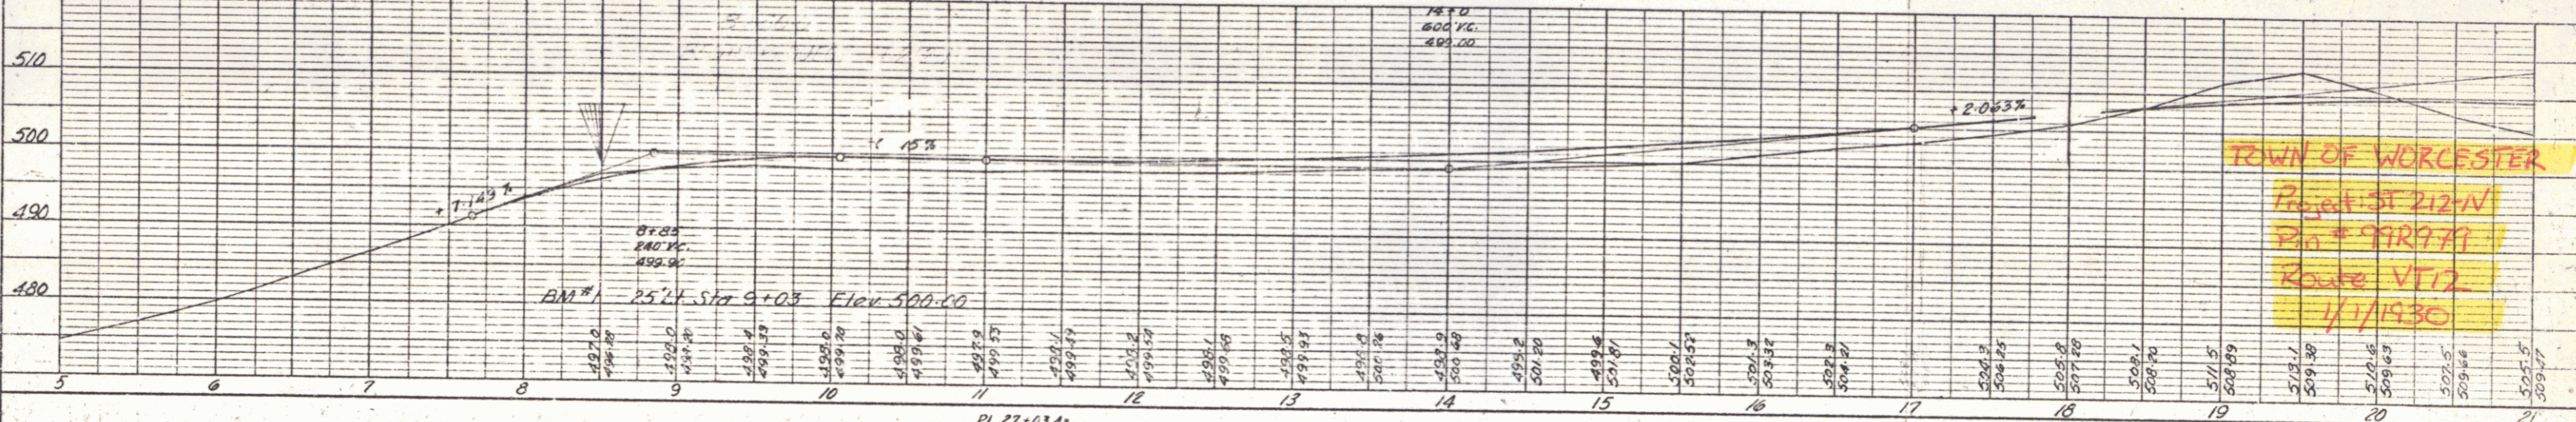 14+0
600'V.C.
499.00
510
500
490
480
+ 7.149%
15%
+2.063%
8+85
240'V.C.
499.90
BM#1 25'Lt. Sta 9+03 Elev. 500.00
TOWN OF WORCESTER
Project: ST 212-IV
Pin # 99R979
Route VT12
1/1/1930
497.0
498.0
498.4
499.39
498.0
499.70
498.0
499.61
497.9
499.53
498.1
499.49
498.2
499.54
498.1
499.68
498.5
499.93
498.8
500.26
498.9
500.68
499.2
501.20
499.6
501.81
500.1
502.52
501.3
503.32
502.3
504.21
506.25
505.8
507.28
508.1
508.20
511.5
508.89
513.1
509.38
510.6
509.63
507.5
509.66
505.5
509.47
5 6 7 8 9 10 11 12 13 14 15 16 17 18 19 20 21